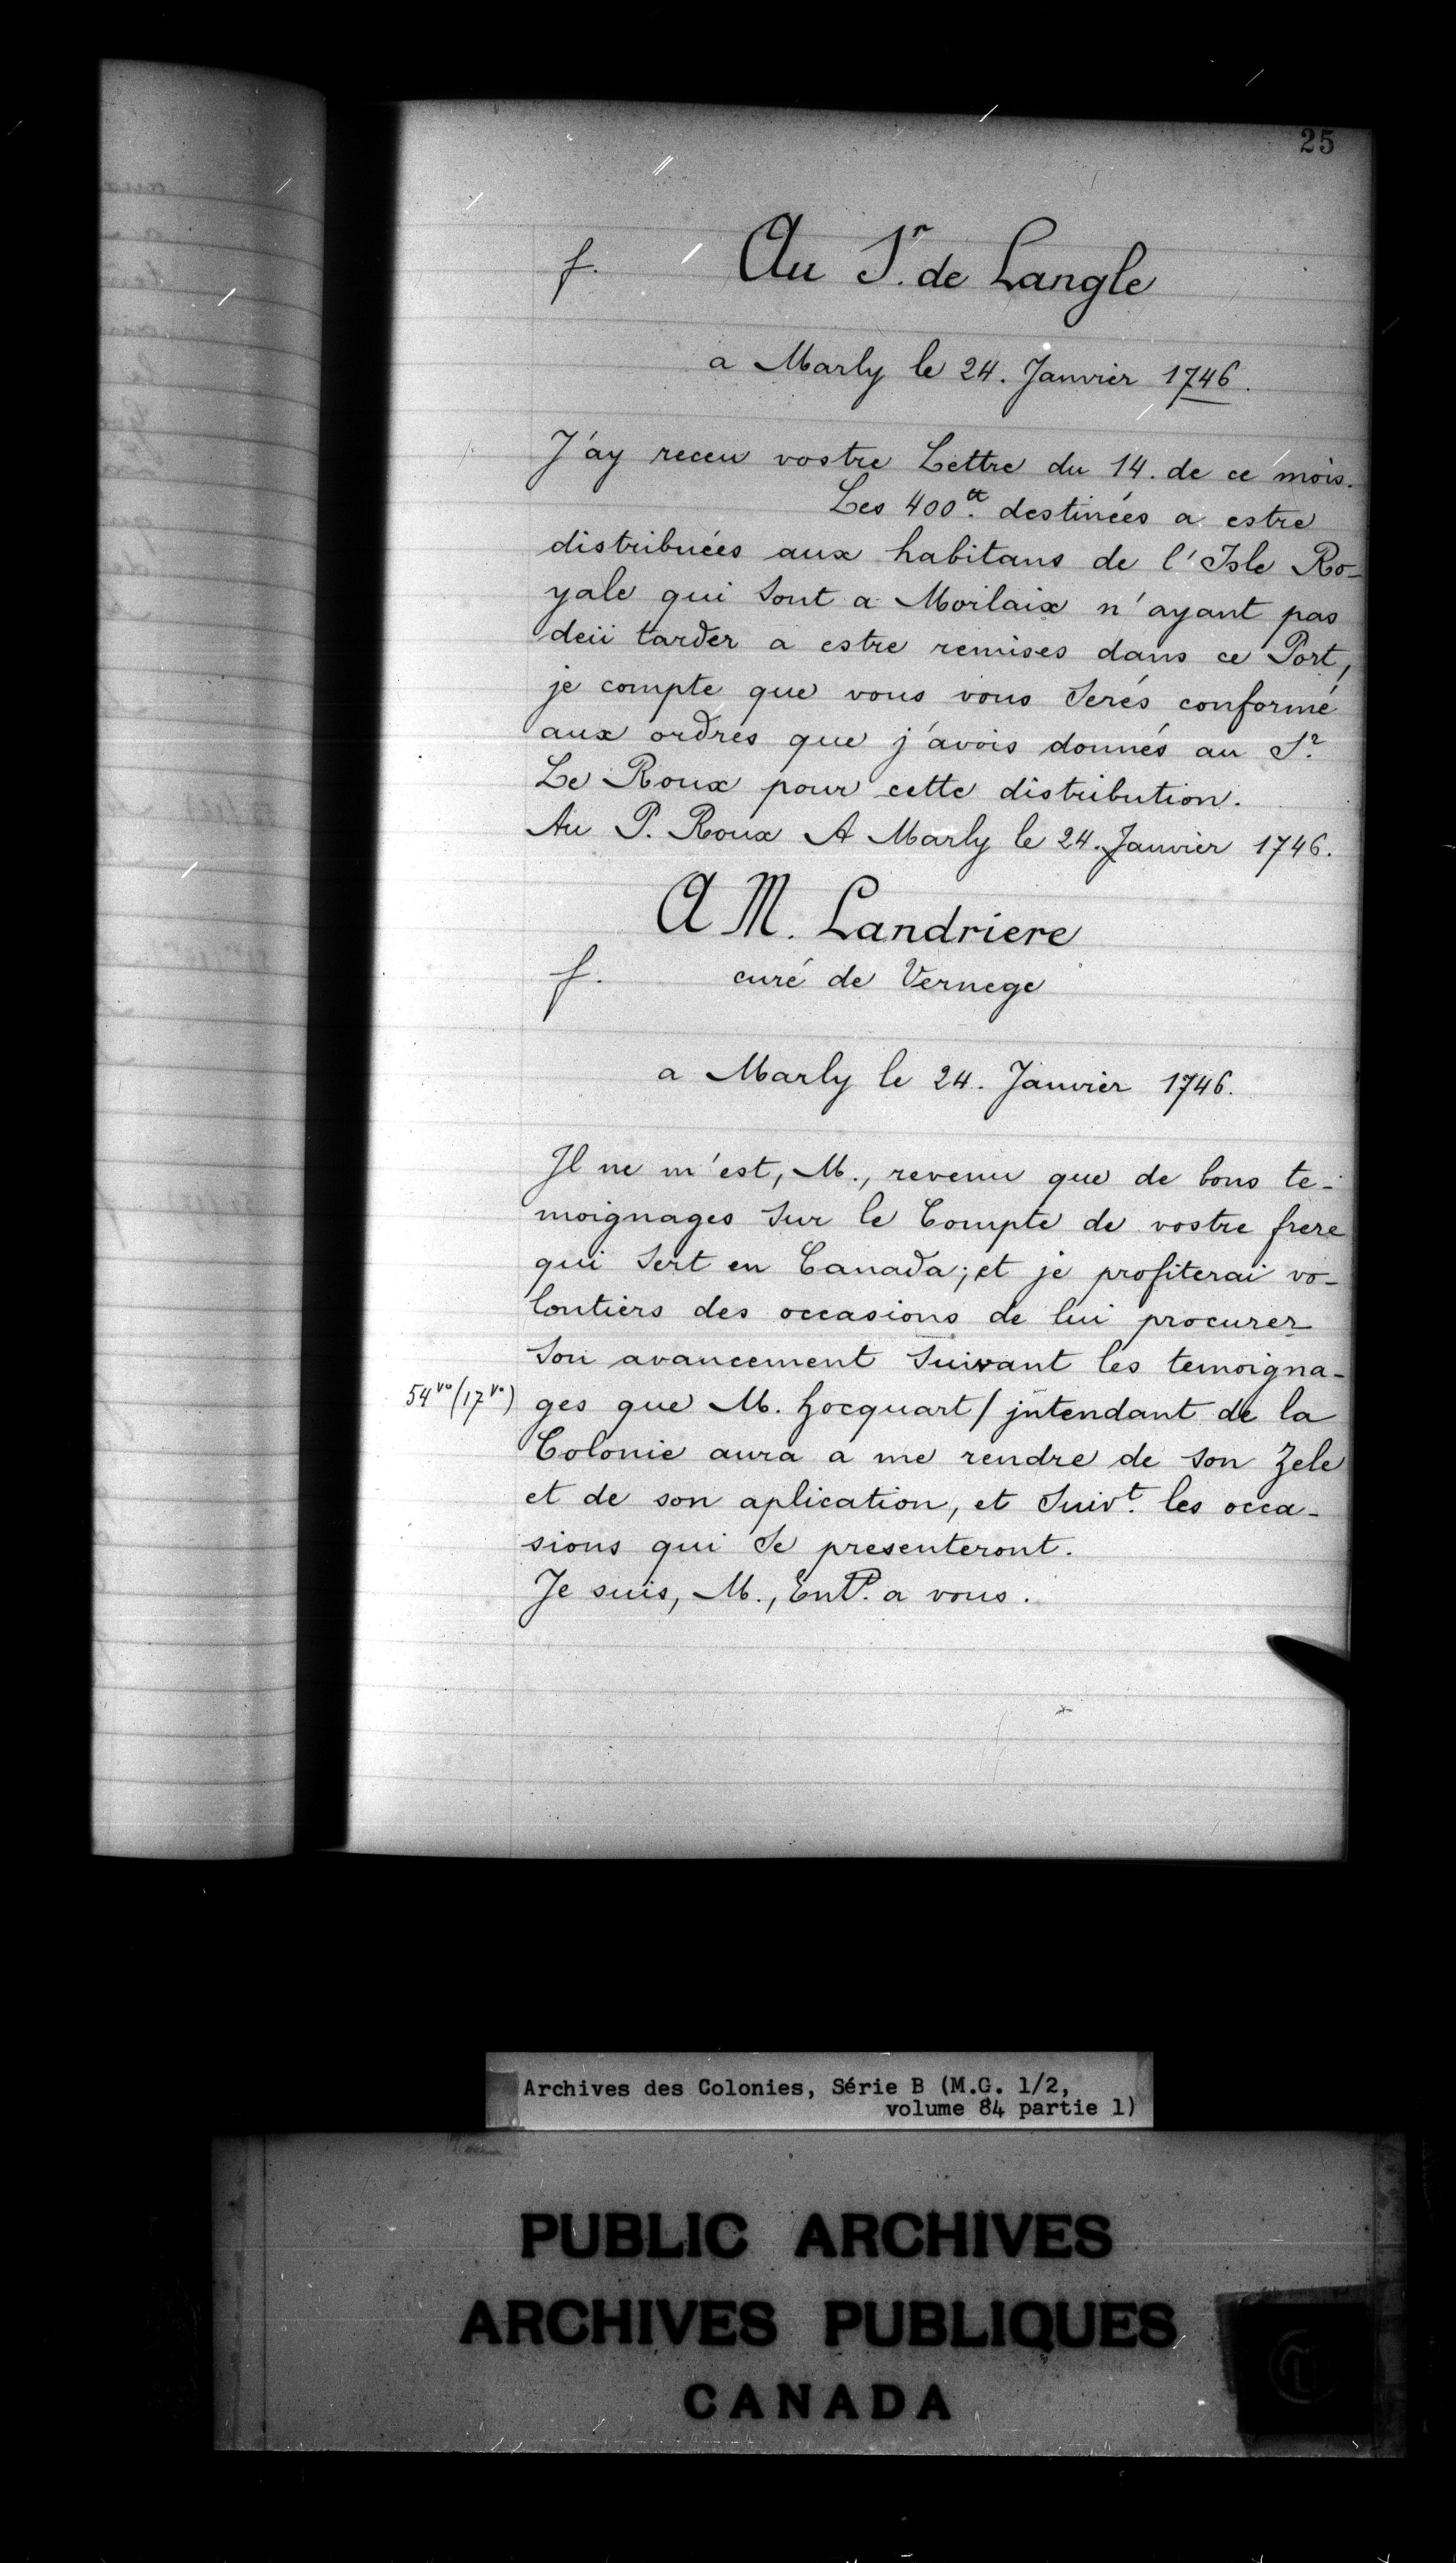 25
f. Au Sr. de Langle
a Marly le 24. Janvier 1746.
J'ay receu vostre Lettre du 14. de ce mois.
Les 400tt. destinées a estre
distribuées aux habitans de l'Isle Ro-
yale qui sont a Morlaix n'ayant pas
deü tarder a estre remises dans ce Port,
je compte que vous vous serés conformé
aux ordres que j'avois donnés au Sr.
Le Roux pour cette distribution.
Au P. Roux A Marly le 24. Janvier 1746.
A M. Landriere
f. curé de Vernege
a Marly le 24. Janvier 1746.
Il ne m'est, M., revenu que de bons te-
moignages sur le Compte de vostre frere
qui sert en Canada; et je profiterai vo-
lontiers des occasions de lui procurer
son avancement suivant les temoigna-
54vo (17vo) ges que M. hocquart / intendant de la
Colonie aura a me rendre de son Zele
et de son aplication, et suivt. les occa-
sions qui se presenteront.
Je suis, M., a vous.
Archives des Colonies, Série B (M.G. 1/2,
volume 84 partie 1)
PUBLIC ARCHIVES
ARCHIVES PUBLIQUES
CANADA